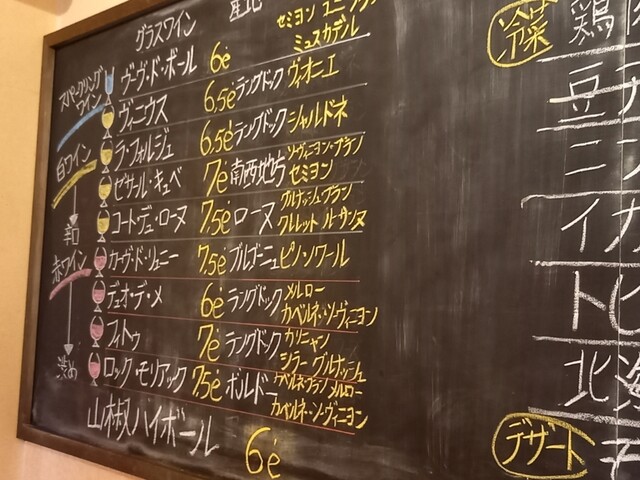 グラスワイン
セミヨン ユニ・ブラン
ミュスカデル
スパークリング
ワイン
ヴーヴ・ド・ボール 6è
ヴィニウス 6.5è ラングドック ヴィオニエ
ラ・フォルジュ 6.5è ラングドック シャルドネ
白ワイン
セザール・キュベ 7è 南西地方 ソーヴィニヨン・ブラン
セミヨン
コート・デュ・ローヌ 7.5è ローヌ グルナッシュ・ブラン
クレレット ルーサンヌ
辛口
赤ワイン
カーヴ・ド・リュニー 7.5è ブルゴーニュ ピノ・ノワール
デュオ・デ・メ 6è ラングドック メルロー
カベルネ・ソーヴィニヨン
フィトゥ 7è ラングドック カリニャン
シラー グルナッシュ
渋め
ロック・モリアック 7.5è ボルドー カベルネ・フラン メルロー
カベルネ・ソーヴィニヨン
山椒ハイボール 6è
冷菜
鶏
豆
ニン
イカ
トピ
北海
デザート